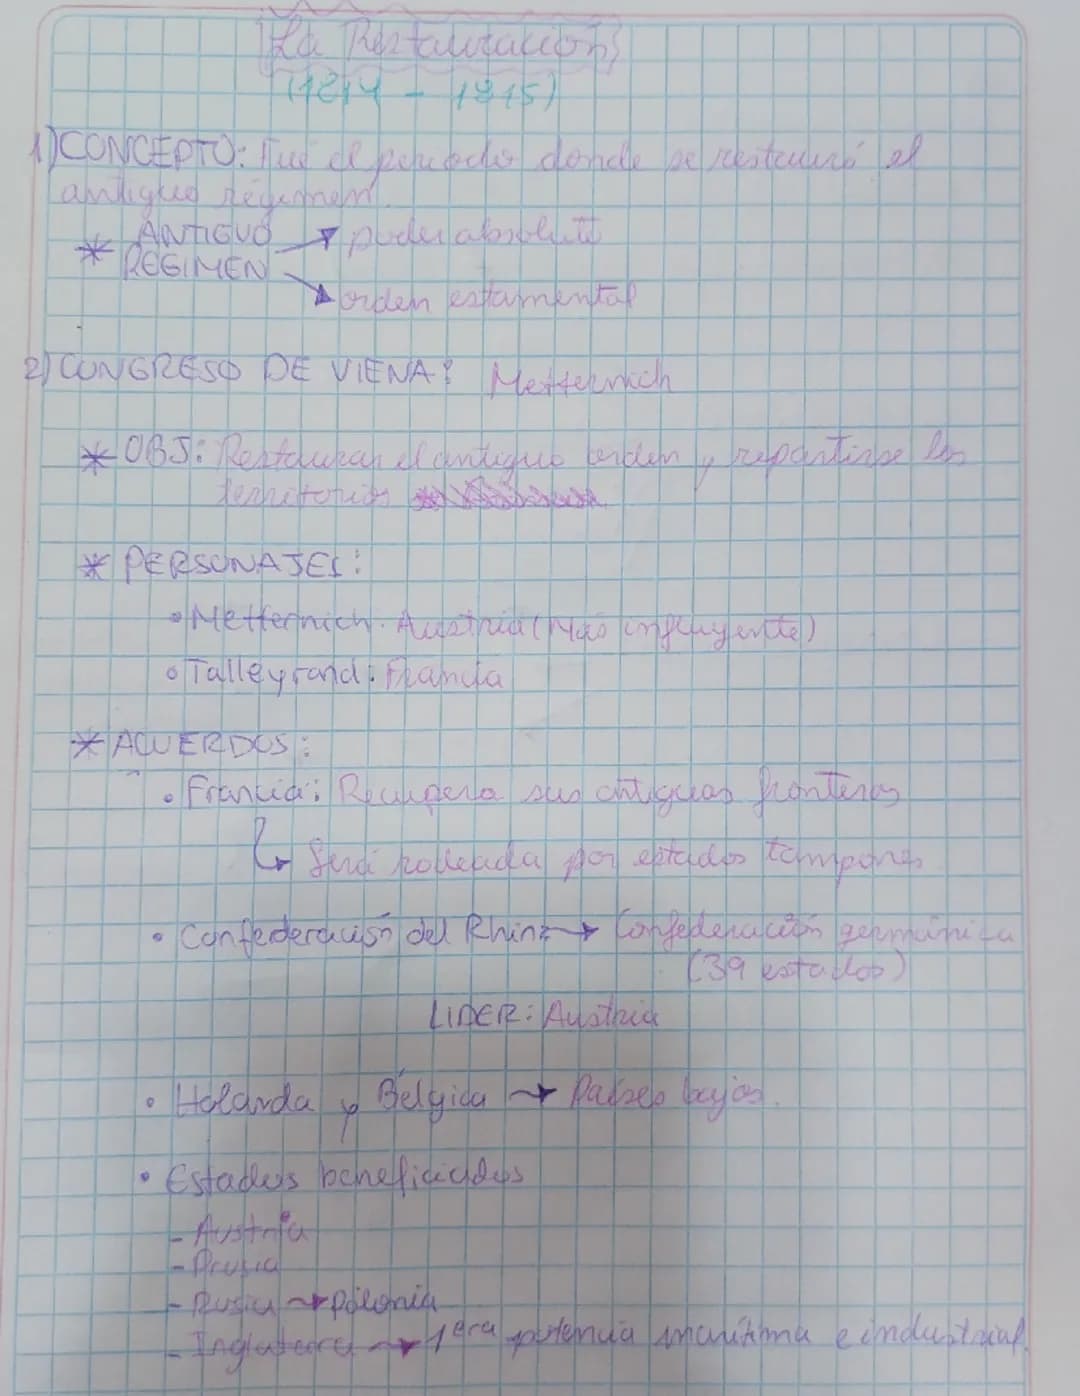 La Restauración
(1814 - 1815)
1) CONCEPTO: Fue el periodo donde se restauró el
antiguo régimen.
* ANTIGUO REGIMEN → poder absoluto
→ orden estamental
2) CONGRESO DE VIENA: Metternich
* OBJ: Restaurar el antiguo orden y repartirse los
territorios
* PERSONAJES:
• Metternich: Austria (Más influyente)
• Talleyrand: Francia
* ACUERDOS:
• Francia: Recupera sus antiguas fronteras
↳ Será rodeada por estados tampones
• Confederación del Rhin → Confederación germánica
(39 estados)
LIDER: Austria
• Holanda y Bélgica → Países bajos.
• Estados beneficiados
- Austria
- Prusia
- Rusia → Polonia
- Inglaterra → 1era potencia marítima e industrial.